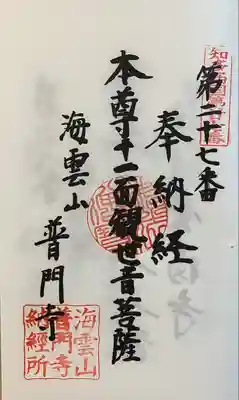 第二十七番
奉納経
本尊十一面観世音菩薩
海雲山
普門寺
海雲山
普門寺
納經所